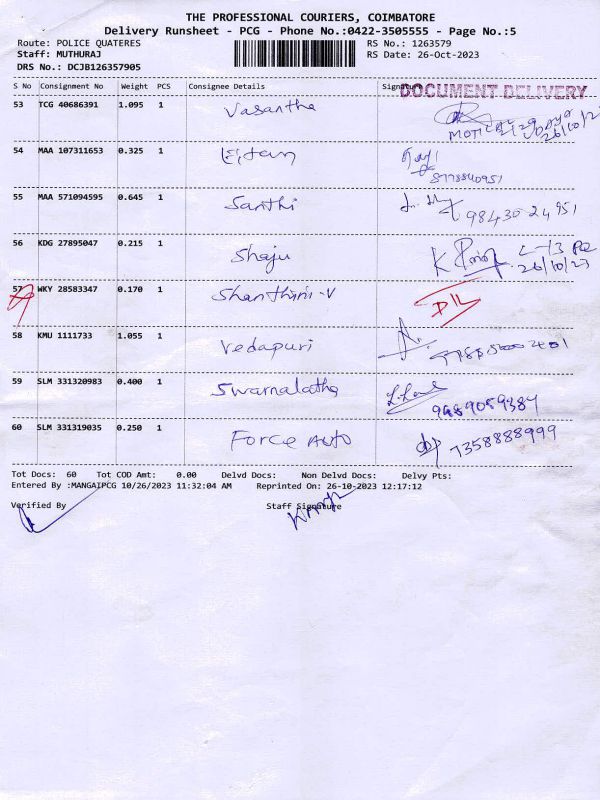 THE PROFESSIONAL COURIERS, COIMBATORE
Delivery Runsheet - PCG - Phone No.:0422-3505555 - Page No.:5
Route: POLICE QUATERES RS No.: 1263579
Staff: MUTHURAJ RS Date: 26-Oct-2023
DRS No.: DCJB126357905
S No Consignment No Weight PCS Consignee Details Signature
DOCUMENT DELIVERY
53 TCG 40686391 1.095 1 Vasantha
26/10/2
54 MAA 107311653 0.325 1
8778840951
55 MAA 571094595 0.645 1 Santhi 98430-24951
56 KDG 27895047 0.215 1 Shaju
26/10/23
57 WKY 28583347 0.170 1 Shanthini-V
58 KMU 1111733 1.055 1 Vedapuri
59 SLM 331320983 0.400 1 Swarnalatha
9489059384
60 SLM 331319035 0.250 1 Force Auto 7358888999
Tot Docs: 60 Tot COD Amt: 0.00 Delvd Docs: Non Delvd Docs: Delvy Pts:
Entered By :MANGAIPCG 10/26/2023 11:32:04 AM Reprinted On: 26-10-2023 12:17:12
Verified By Staff Signature